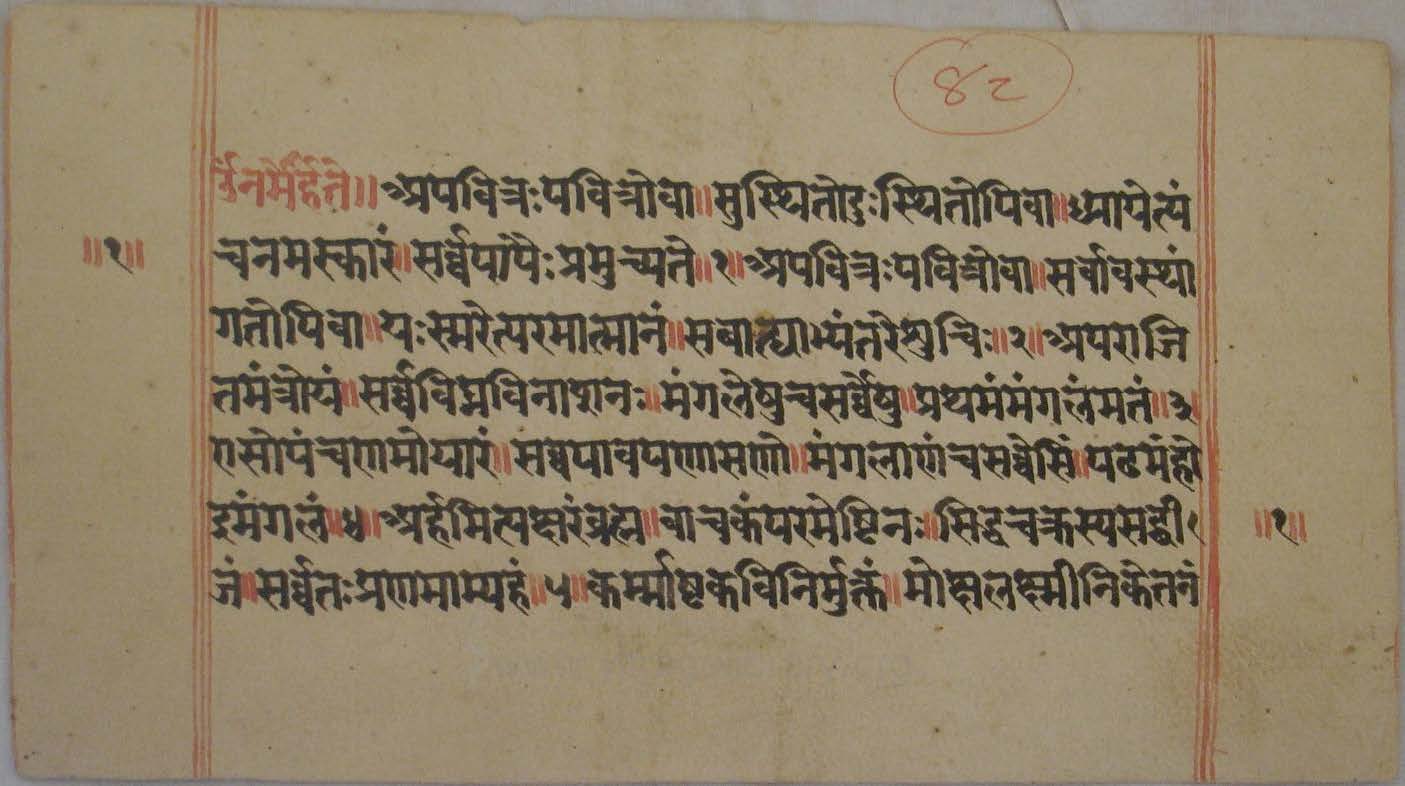 ४८
ॐनर्मेर्हते॥ अपवित्रःपवित्रोवा॥सुस्थितोदुःस्थितोपिवा॥ध्यायेत्पं
॥१॥
चनमस्कारं॥सर्व्वपापैःप्रमुच्यते॥१॥अपवित्रःपवित्रोवा॥सर्वावस्थां
गतोपिवा॥यःस्मरेत्परमात्मानं॥सबाह्याभ्यंतरेशुचिः॥२॥अपराजि
तमंत्रोयं॥सर्व्वविघ्नविनाशनः॥मंगलेषुचसर्व्वेषु॥प्रथमंमंगलंमतं॥३
एसोपंचणमोयारं॥सव्वपावपणासणो॥मंगलाणंचसव्वेसिं॥पढमंहो
इमंगलं॥४॥अर्हमित्यक्षरंब्रह्म॥वाचकंपरमेष्टिनः॥सिद्धचक्रस्यसद्बी
॥१॥
जं॥सर्व्वतःप्रणमाम्यहं॥५॥कर्म्माष्टकविनिर्मुक्तं॥मोक्षलक्ष्मीनिकेतनं